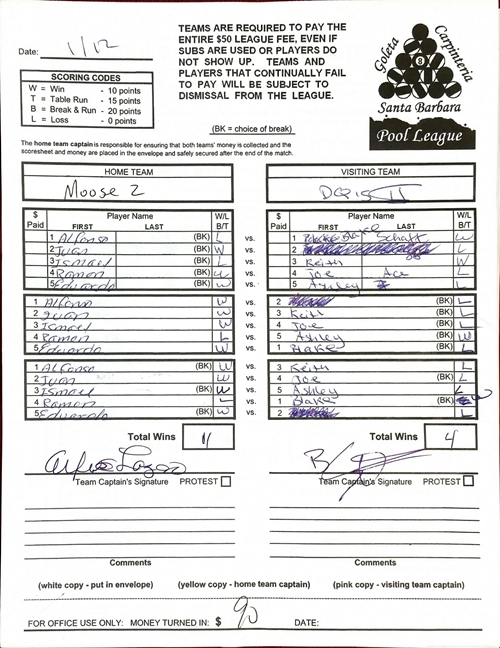 TEAMS ARE REQUIRED TO PAY THE
ENTIRE $50 LEAGUE FEE, EVEN IF
SUBS ARE USED OR PLAYERS DO
NOT SHOW UP. TEAMS AND
PLAYERS THAT CONTINUALLY FAIL
TO PAY WILL BE SUBJECT TO
DISMISSAL FROM THE LEAGUE.
Date: 1/12
Goleta
Carpinteria
8
Santa Barbara
Pool League
SCORING CODES
W = Win - 10 points
T = Table Run - 15 points
B = Break & Run - 20 points
L = Loss - 0 points
(BK = choice of break)
The home team captain is responsible for ensuring that both teams' money is collected and the
scoresheet and money are placed in the envelope and safely secured after the end of the match.
HOME TEAM VISITING TEAM
Moose 2
$ Paid Player Name FIRST LAST W/L B/T $ Paid Player Name FIRST LAST W/L B/T
1 Alfonso (BK) L vs. 1 Blake Schaff W
2 Juan (BK) W vs. 2 L
3 Ismael (BK) L vs. 3 Keith W
4 Ramon (BK) W vs. 4 Joe Ace L
5 Eduardo (BK) W vs. 5 Ashley L
1 Alfonso W vs. 2 (BK) L
2 Juan W vs. 3 Keith (BK) L
3 Ismael W vs. 4 Joe (BK) L
4 Ramon L vs. 5 Ashley (BK) W
5 Eduardo W vs. 1 Blake (BK) L
1 Alfonso (BK) W vs. 3 Keith L
2 Juan W vs. 4 Joe (BK) L
3 Ismael (BK) W vs. 5 Ashley L
4 Ramon L vs. 1 Blake (BK) W
5 Eduardo (BK) W vs. 2 L
Total Wins 11 Total Wins 4
Team Captain's Signature PROTEST Team Captain's Signature PROTEST
Comments Comments
(white copy - put in envelope) (yellow copy - home team captain) (pink copy - visiting team captain)
FOR OFFICE USE ONLY: MONEY TURNED IN: $ 90 DATE: